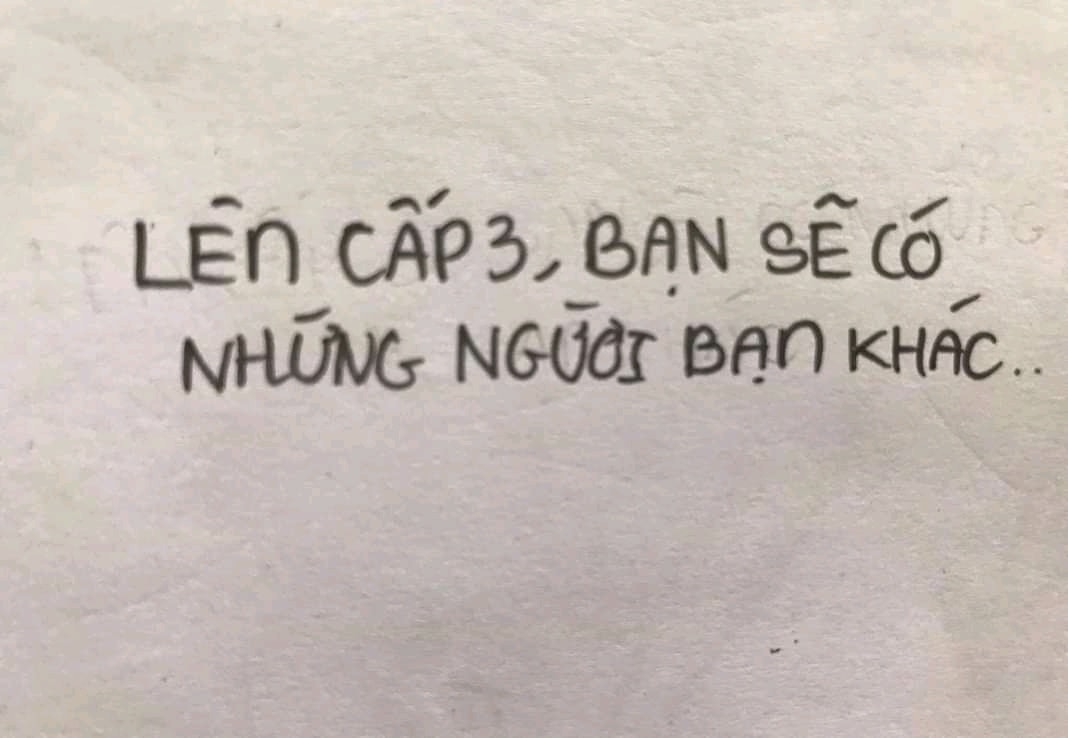 LÊN CẤP 3, BẠN SẼ CÓ
NHỮNG NGƯỜI BẠN KHÁC..